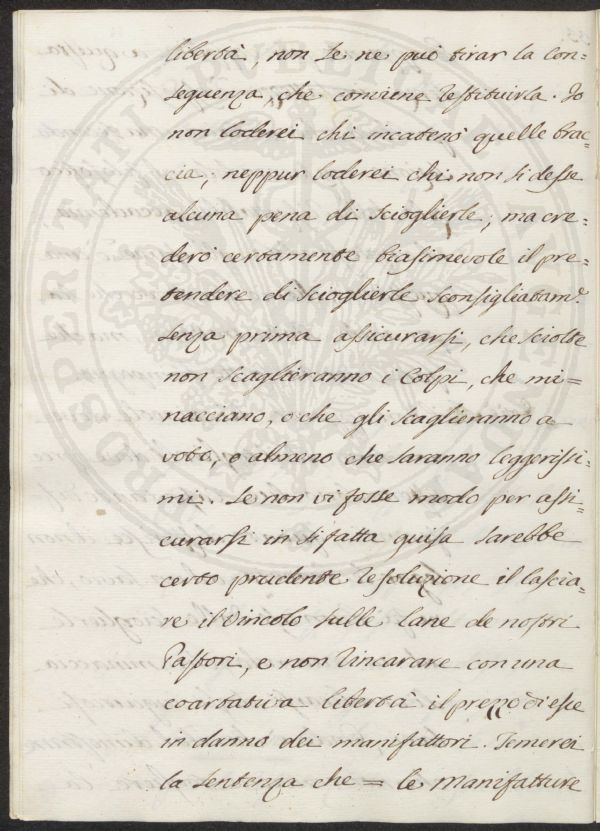 libertà, non se ne può tirar la con=
seguenza, che conviene restituirla. Io
non loderei chi incatenò quelle brac=
cia, neppur loderei chi non si desse
alcuna pena di scioglierle; ma cre=
derò certamente biasimevole il pre=
tendere di scioglierle sconsigliatam.e
senza prima assicurarsi, che sciolte
non scaglieranno i colpi, che mi=
nacciano, o che gli scaglieranno a
voto, o almeno che saranno leggerissi=
mi. Se non vi fosse modo per assi=
curarsi in sì fatta guisa sarebbe
certo prudente resoluzione il lascia=
re il vincolo sulle lane de nostri
Pastori, e non rincarare con una
coartativa libertà il prezzo di esse
in danno dei manifattori. Temerei
la sentenza che = le Manifatture
PROSPERITATI PUBLICAE AUGENDAE